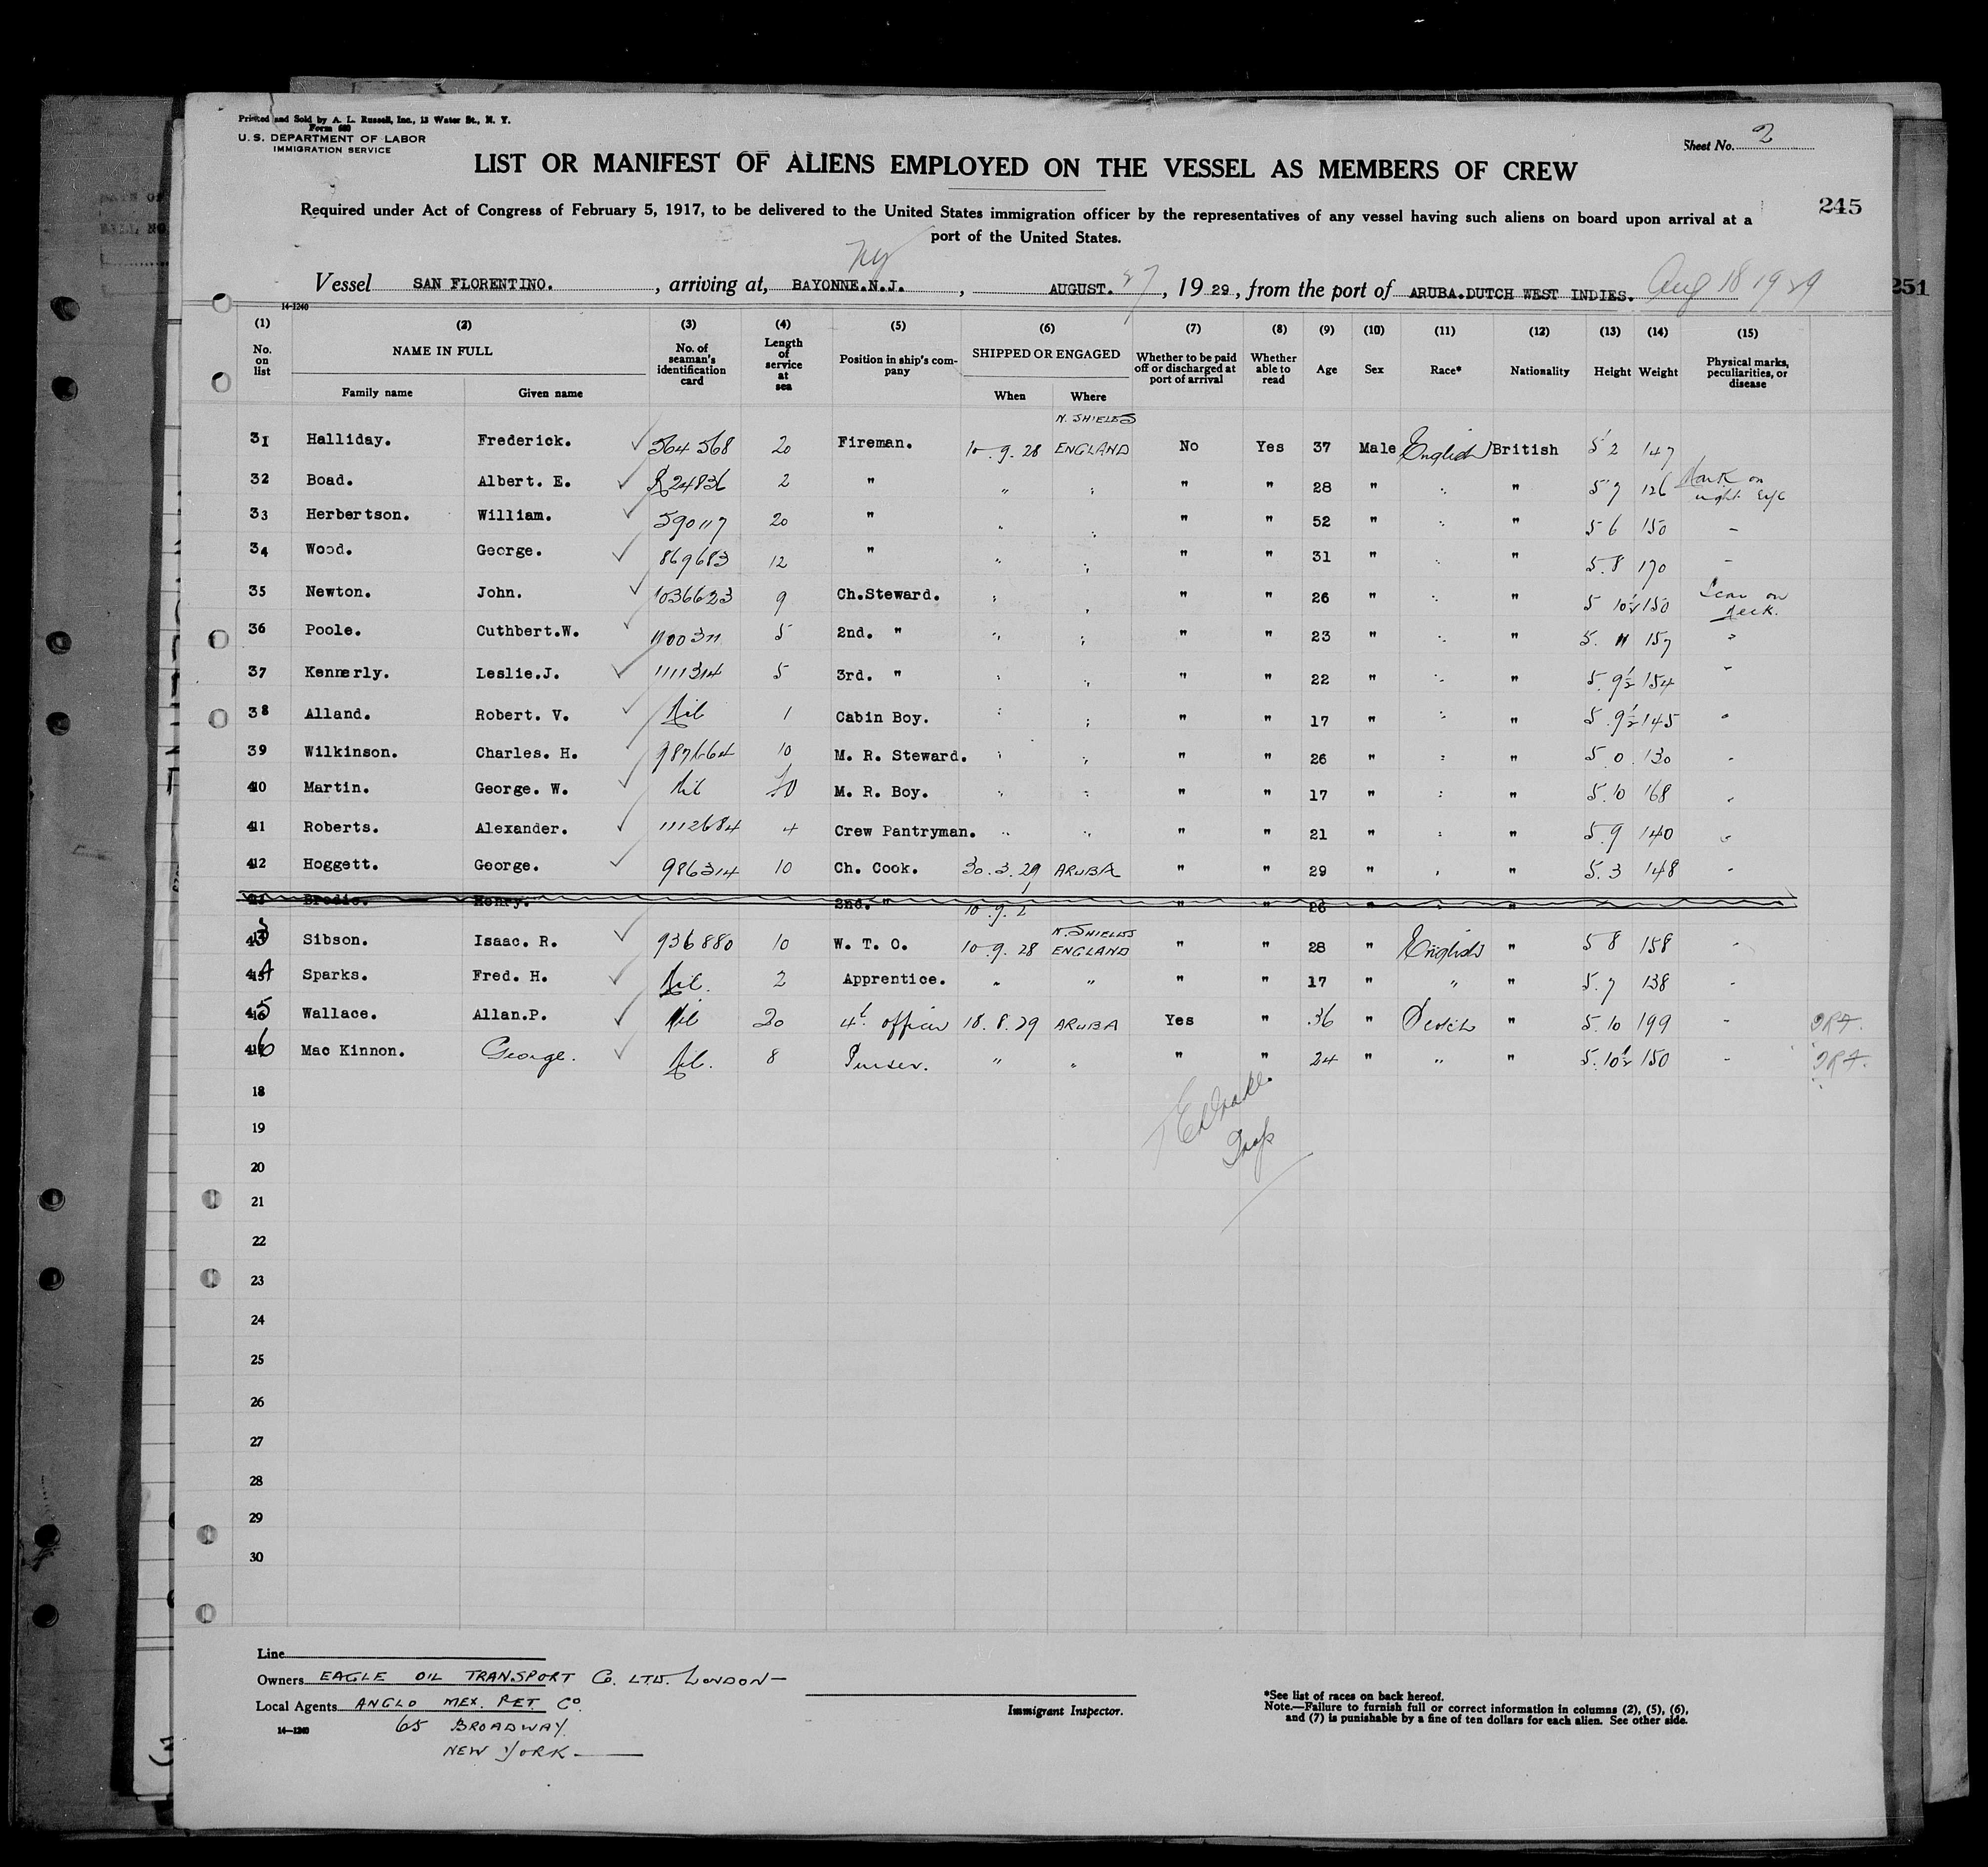 Printed and Sold by A. L. Russell, Inc., 13 Water St., N. Y.
Form 680
U. S. DEPARTMENT OF LABOR
IMMIGRATION SERVICE
Sheet No. 2
LIST OR MANIFEST OF ALIENS EMPLOYED ON THE VESSEL AS MEMBERS OF CREW
245
Required under Act of Congress of February 5, 1917, to be delivered to the United States immigration officer by the representatives of any vessel having such aliens on board upon arrival at a
port of the United States.
NY
Vessel SAN FLORENTINO. , arriving at, BAYONNE.N.J. , AUGUST. 27 , 19 29 , from the port of ARUBA.DUTCH WEST INDIES. Aug 18 1929
251
14-1240
(1) (2) (3) (4) (5) (6) (7) (8) (9) (10) (11) (12) (13) (14) (15)
No. on list NAME IN FULL Family name Given name No. of seaman's identification card Length of service at sea Position in ship's company SHIPPED OR ENGAGED When Where Whether to be paid off or discharged at port of arrival Whether able to read Age Sex Race* Nationality Height Weight Physical marks, peculiarities, or disease
N. SHIELDS
31 Halliday. Frederick. 564568 20 Fireman. 10.9.28 ENGLAND No Yes 37 Male English British 5'2 147
32 Boad. Albert. E. 24836 2 " " " " " 28 " " " 5'7 126 Mark on right Eye
33 Herbertson. William. 590117 20 " " " " " 52 " " " 5 6 150 -
34 Wood. George. 869683 12 " " " " " 31 " " " 5.8 170 -
35 Newton. John. 1036623 9 Ch.Steward. " " " " 26 " " " 5 10½ 150 Scar on neck.
36 Poole. Cuthbert.W. 1100311 5 2nd. " " " " " 23 " " " 5. 11 157 "
37 Kennerly. Leslie.J. 1111314 5 3rd. " " " " " 22 " " " 5.9½ 154 "
38 Alland. Robert. V. Nil 1 Cabin Boy. " " " " 17 " " " 5.9½ 145 "
39 Wilkinson. Charles. H. 987664 10 M. R. Steward. " " " " 26 " " " 5.0 130 "
40 Martin. George. W. Nil M. R. Boy. " " " " 17 " " " 5.10 168 "
41 Roberts. Alexander. 1112684 4 Crew Pantryman. " " " " 21 " " " 5.9 140 "
42 Hoggett. George. 986314 10 Ch. Cook. 30.3.29 ARUBA " " 29 " " " 5.3 148 "
Brodie. Henry. 2nd. " 10.9.2 " " 26 " " "
N. SHIELDS
43 Sibson. Isaac. R. 936880 10 W. T. O. 10.9.28 ENGLAND " " 28 " English " 5 8 158 -
44 Sparks. Fred. H. Nil. 2 Apprentice. " " " " 17 " " " 5.7 138 -
45 Wallace. Allan.P. Nil 20 4th officer 18.8.29 ARUBA Yes " 36 " Scotch " 5.10 199 -
46 Mac Kinnon. George. Nil. 8 Purser. " " " " 24 " " " 5.10½ 150 -
18
19
20
21
22
23
24
25
26
27
28
29
30
Line
Owners EAGLE OIL TRANSPORT Co. LTD. LONDON -
Local Agents ANGLO MEX. PET. Co.
65 BROADWAY.
NEW YORK.
14-1240
Immigrant Inspector.
*See list of races on back hereof.
Note.—Failure to furnish full or correct information in columns (2), (5), (6),
and (7) is punishable by a fine of ten dollars for each alien. See other side.